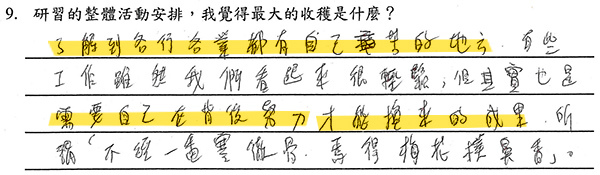 9. 研習的整體活動安排,我覺得最大的收穫是什麼?
了解到各行各業都有自己辛苦的地方,有些
工作雖然我們看起來很輕鬆,但其實也是
需要自己在背後努力才能換來的成果.所
謂「不經一番寒徹骨.焉得梅花撲鼻香」。